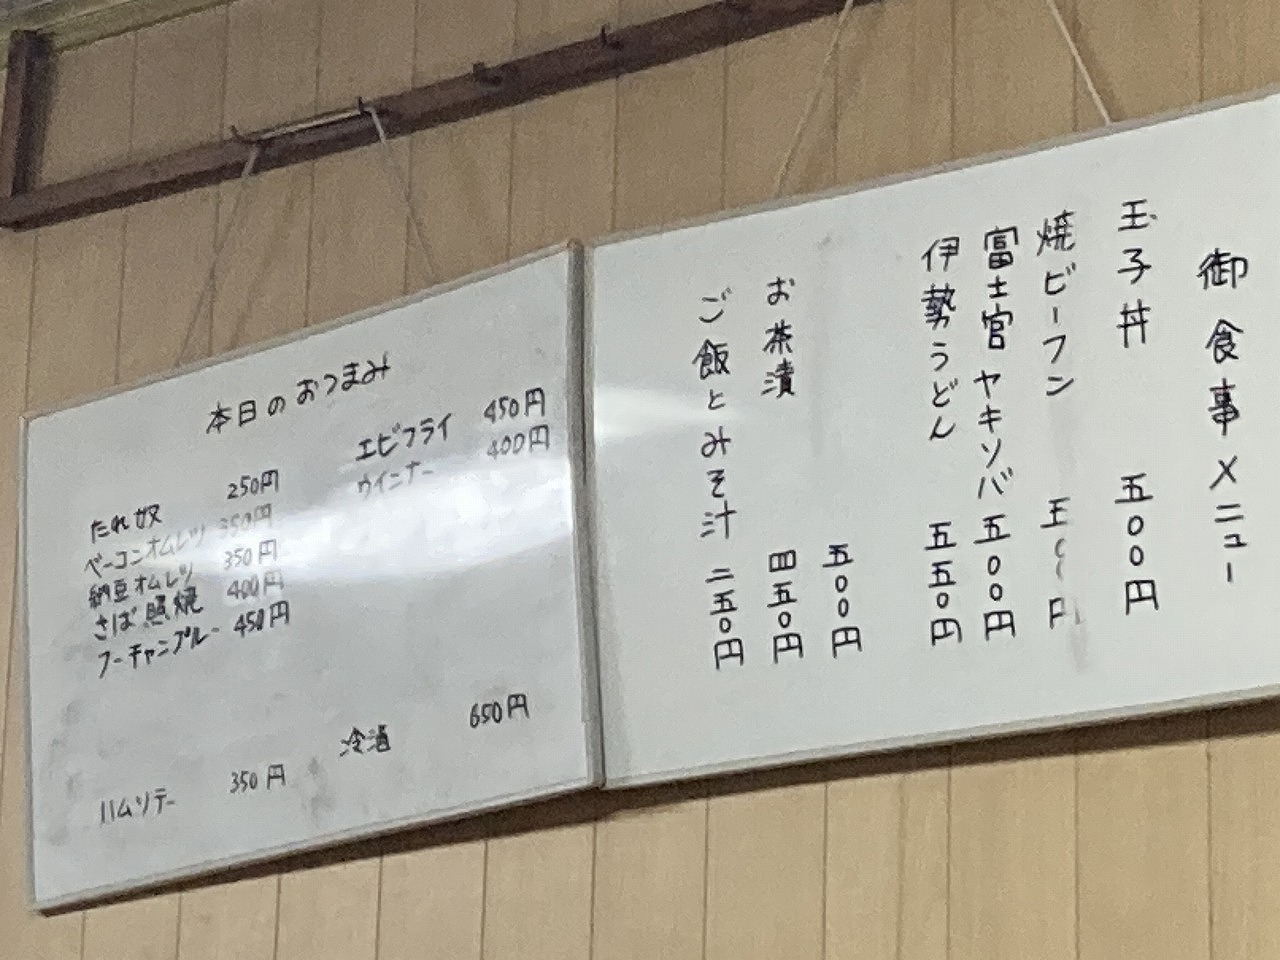 御食事メニュー
玉子丼 五００円
焼ビーフン 五 円
富士宮ヤキソバ 五００円
伊勢うどん 五五０円
五００円
お茶漬 四五０円
ご飯とみそ汁 二五０円
本日のおつまみ
たれ奴 250円
ベーコンオムレツ 350円
納豆オムレツ 350円
さば照焼 400円
フーチャンプルー 450円
エビフライ 450円
ウインナー 400円
冷酒 650円
ハムソテー 350円